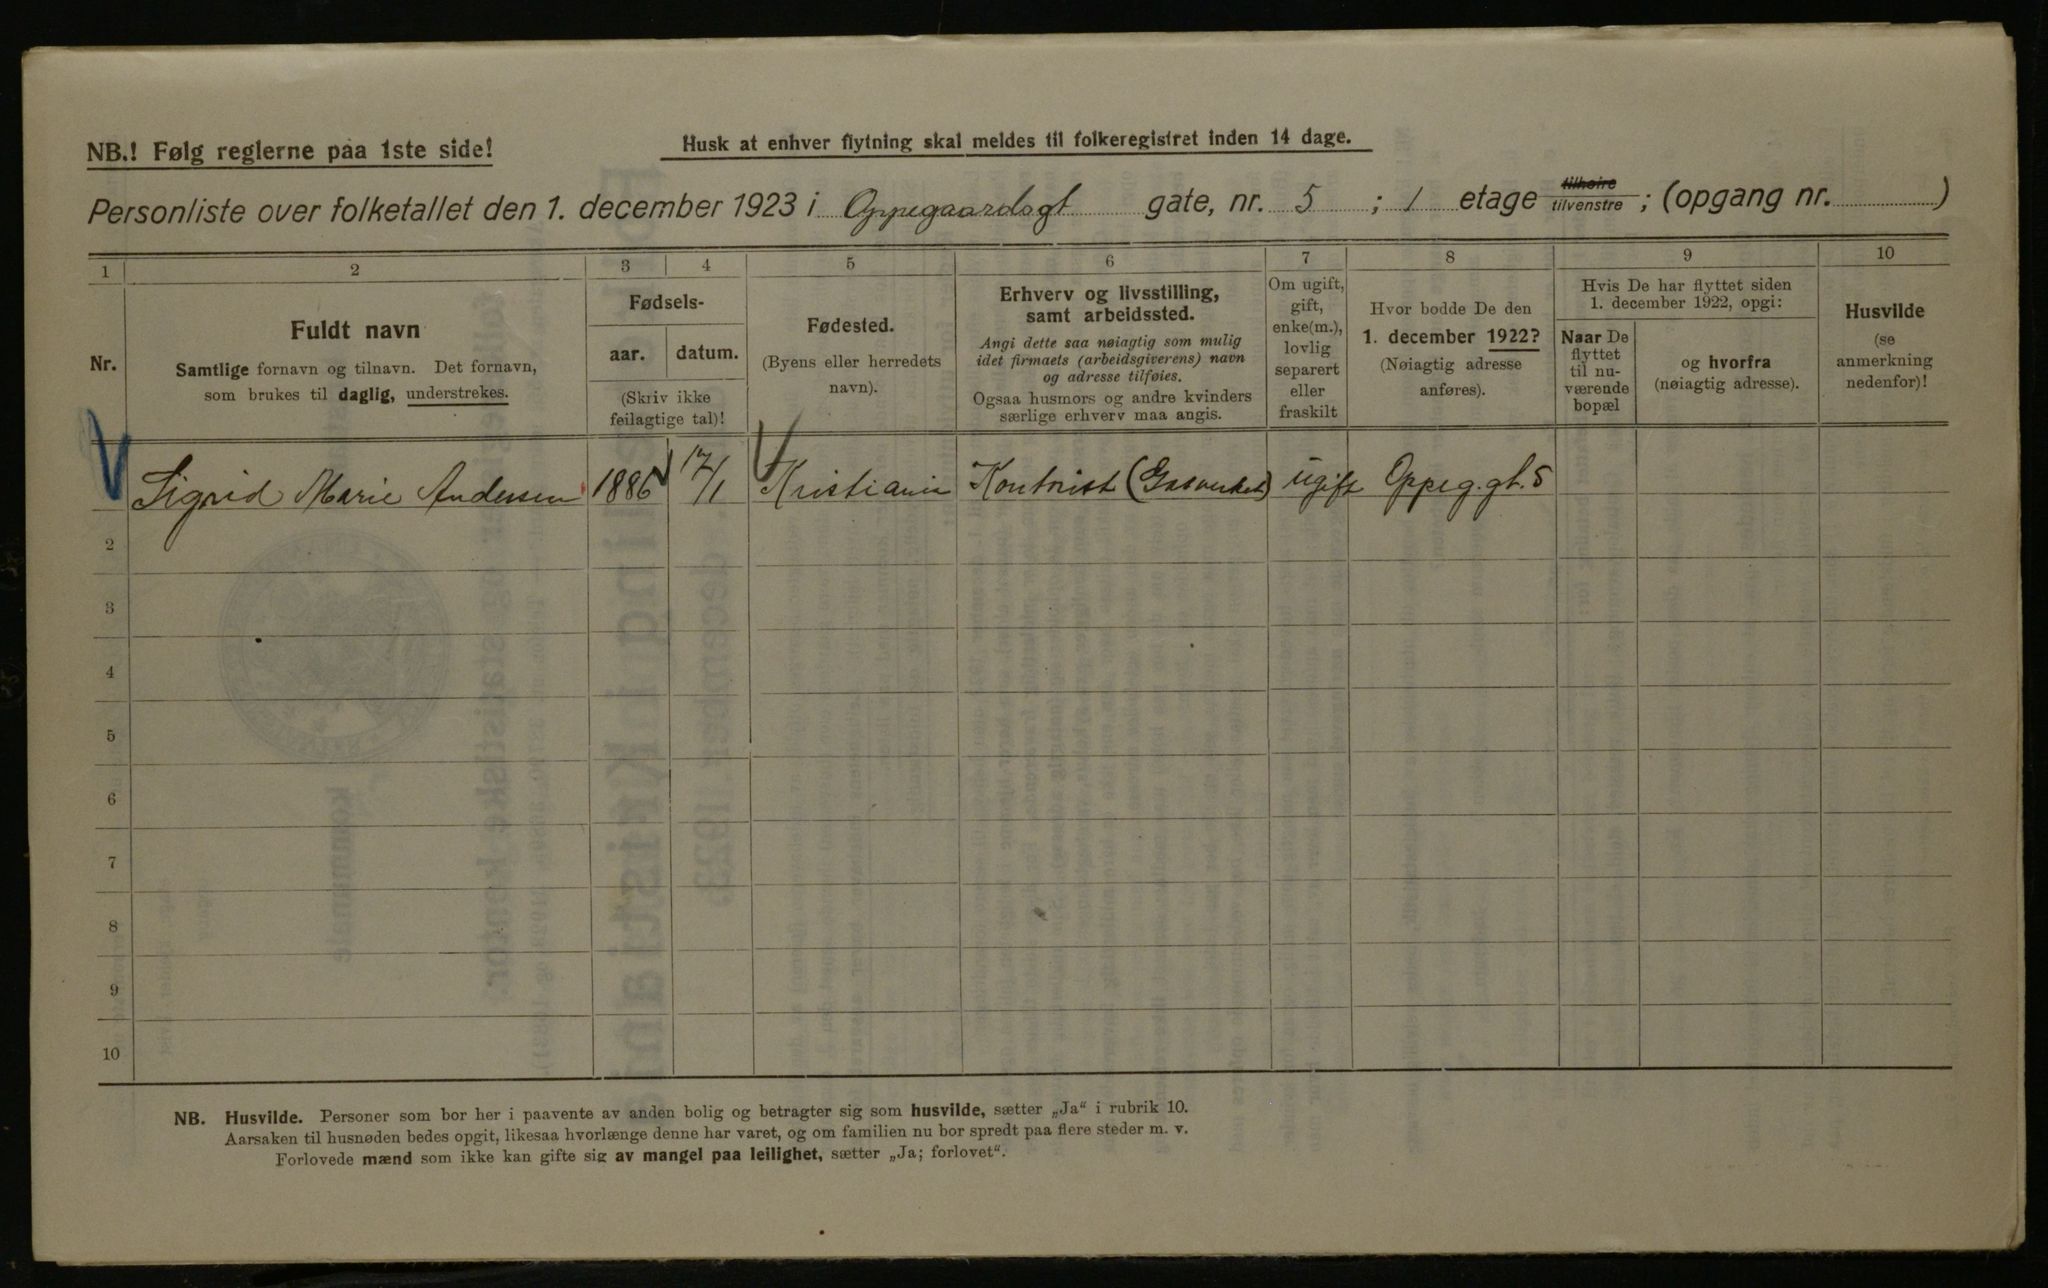 NB.! Følg reglerne paa 1ste side!
Husk at enhver flytning skal meldes til folkeregistret inden 14 dage.
Personliste over folketallet den 1. december 1923 i Oppegaardsgt gate, nr. 5 ; 1 etage tilhøire tilvenstre ; (opgang nr. )
1 2 3 4 5 6 7 8 9 10
Nr.
Fuldt navn
Samtlige fornavn og tilnavn. Det fornavn,
som brukes til daglig, understrekes.
Fødsels-
aar. datum.
(Skriv ikke
feilagtige tal)!
Fødested.
(Byens eller herredets
navn).
Erhverv og livsstilling,
samt arbeidssted.
Angi dette saa nøiagtig som mulig
idet firmaets (arbeidsgiverens) navn
og adresse tilføies.
Ogsaa husmors og andre kvinders
særlige erhverv maa angis.
Om ugift,
gift,
enke(m.),
lovlig
separert
eller
fraskilt
Hvor bodde De den
1. december 1922?
(Nøiagtig adresse
anføres).
Hvis De har flyttet siden
1. december 1922, opgi:
Naar De
flyttet
til nu-
værende
bopæl
og hvorfra
(nøiagtig adresse).
Husvilde
(se
anmerkning
nedenfor)!
Sigrid Marie Andersen 1886 17/1 Kristiania Kontorist (Gasverket) ugift Oppeg.gt. 5
2
3
4
5
6
7
8
9
10
NB. Husvilde. Personer som bor her i paavente av anden bolig og betragter sig som husvilde, sætter „Ja“ i rubrik 10.
Aarsaken til husnøden bedes opgit, likesaa hvorlænge denne har varet, og om familien nu bor spredt paa flere steder m. v.
Forlovede mænd som ikke kan gifte sig av mangel paa leilighet, sætter „Ja; forlovet“.